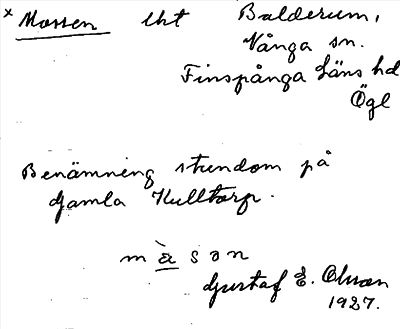 x Mossen lht Balderum,
Vånga sn.
Finspånga Läns hd
Ögl
Benämning stundom på
Gamla Kulltorp.
m à s o n
Gustaf E. Olsson
1927.